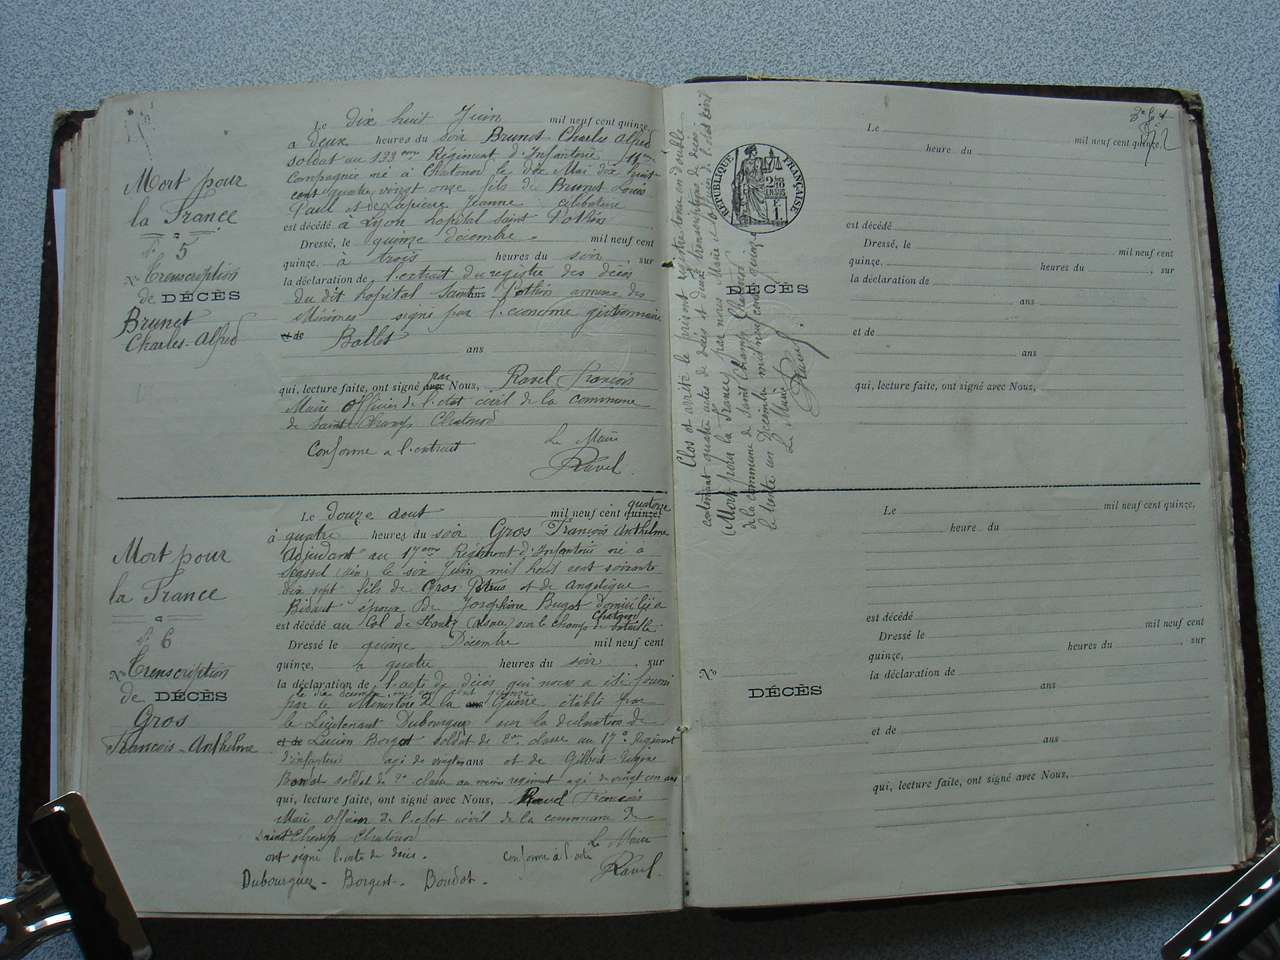 Mort pour
la France
N° 5
Transcription
de DÉCÈS
Brunet
Charles-Alfred
Le dix huit Juin mil neuf cent quinze,
à deux heures du soir Brunet Charles Alfred
soldat au 133ème Régiment d'Infanterie, 11ème
compagnie né à Chatonod le dix Mai dix huit
cent quatre vingt onze fils de Brunet Louis
Paul et de Lapierre Jeanne célibataire
est décédé à Lyon hopital Saint Pothin
Dressé, le quinze décembre mil neuf cent
quinze, à trois heures du soir, sur
la déclaration de l'extrait du registre des décès
du dit hopital Saint Pothin annexe des
Minimes signé par l'économe gestionnaire
et de Ballet
ans
qui, lecture faite, ont signé par avec Nous, Ravel François
Maire officier de l'etat civil de la commune
de Saint Champ Chatonod
Conforme a l'extrait Le Maire
Ravel
Mort pour
la France
N° 6
Transcription
de DÉCÈS
Gros
François-Anthelme
Le douze aout mil neuf cent quinze, quatorze
à quatre heures du soir Gros François Anthelme
Adjudant au 17ème Régiment d'Infanterie né à
Seyssel (Ain) le six Juin mil huit cent soixante
dix sept fils de Gros Petrus et de Angelique
époux de Josephine domicilié à Chatonod
est décédé au Col de (Alsace) sur le champ de bataille
Dressé le quinze Décembre mil neuf cent
quinze, à quatre heures du soir, sur
la déclaration de l'acte de décès qui nous a été fourni
par le Ministère de la Guerre établi par
le Lieutenant Dubourguez sur la déclaration de
et de Lucien Borget soldat de 2me classe au 17e Régiment
d'infanterie agé de vingt ans et de Gilbert Eugène
Bondot soldat de 2e classe au même régiment agé de vingt cinq ans
qui, lecture faite, ont signé avec Nous, Ravel François
Maire officier de l'etat civil de la commune de
Saint Champ Chatonod Le Maire
ont signé l'acte de décès. Conforme à l'acte
Dubourguez - Borget - Bondot. Ravel
Clos et arrêté le présent registre tenu en double
contenant quatre actes de décès et deux transcriptions de décès
(Mort pour la France) par nous Maire officier de l'état civil
de la commune de Saint Champ Chatonod
le trente un Décembre mil neuf cent quinze
Le Maire
Ravel
RÉPUBLIQUE FRANÇAISE
DÉCÈS
Le mil neuf cent quinze,
heure du
est décédé
Dressé, le mil neuf cent
quinze, heures du , sur
la déclaration de
ans
et de
ans
qui, lecture faite, ont signé avec Nous,
N°
DÉCÈS
Le mil neuf cent quinze,
heure du
est décédé
Dressé le mil neuf cent
quinze, heures du , sur
la déclaration de
ans
et de
ans
qui, lecture faite, ont signé avec Nous,